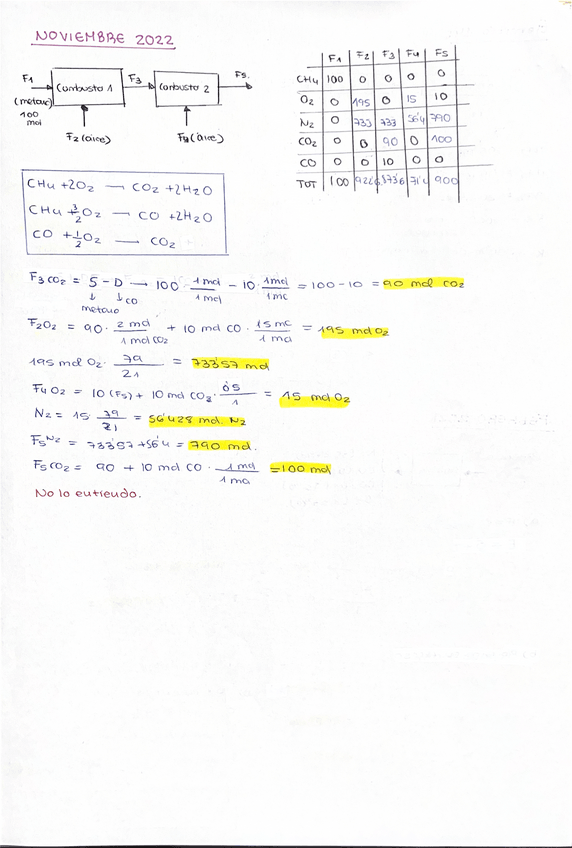 NOVIEMBRE 2022
F1
(metano)
100
mol
Combusto 1
F3
Combusto 2
F5.
F2 (aire)
F4 (aire)
F1 F2 F3 F4 F5
CH4 100 0 0 0 0
O2 0 195 0 15 10
N2 0 733 733 56'4 790
CO2 0 0 90 0 100
CO 0 0 10 0 0
TOT 100 900
CH4 + 2O2 — CO2 + 2H2O
CH4 + 3/2 O2 — CO + 2H2O
CO + 1/2 O2 — CO2
F3 CO2 = S - D → 100 · 1 mol / 1 mol - 10 · 1 mol / 1 mc = 100 - 10 = 90 mol CO2
↓ ↓ CO
metano
F2 O2 = 90 · 2 mol / 1 mol CO2 + 10 mol CO · 1'5 mc / 1 mol = 195 mol O2
195 mol O2 · 79 / 21 = 733'57 mol
F4 O2 = 10 (F5) + 10 mol CO2 · 0'5 / 1 = 15 mol O2
N2 = 15 · 79 / 21 = 56'428 mol. N2
F5 N2 = 733'57 + 56'4 = 790 mol.
F5 CO2 = 90 + 10 mol CO · 1 mol / 1 mol = 100 mol
No lo entiendo.